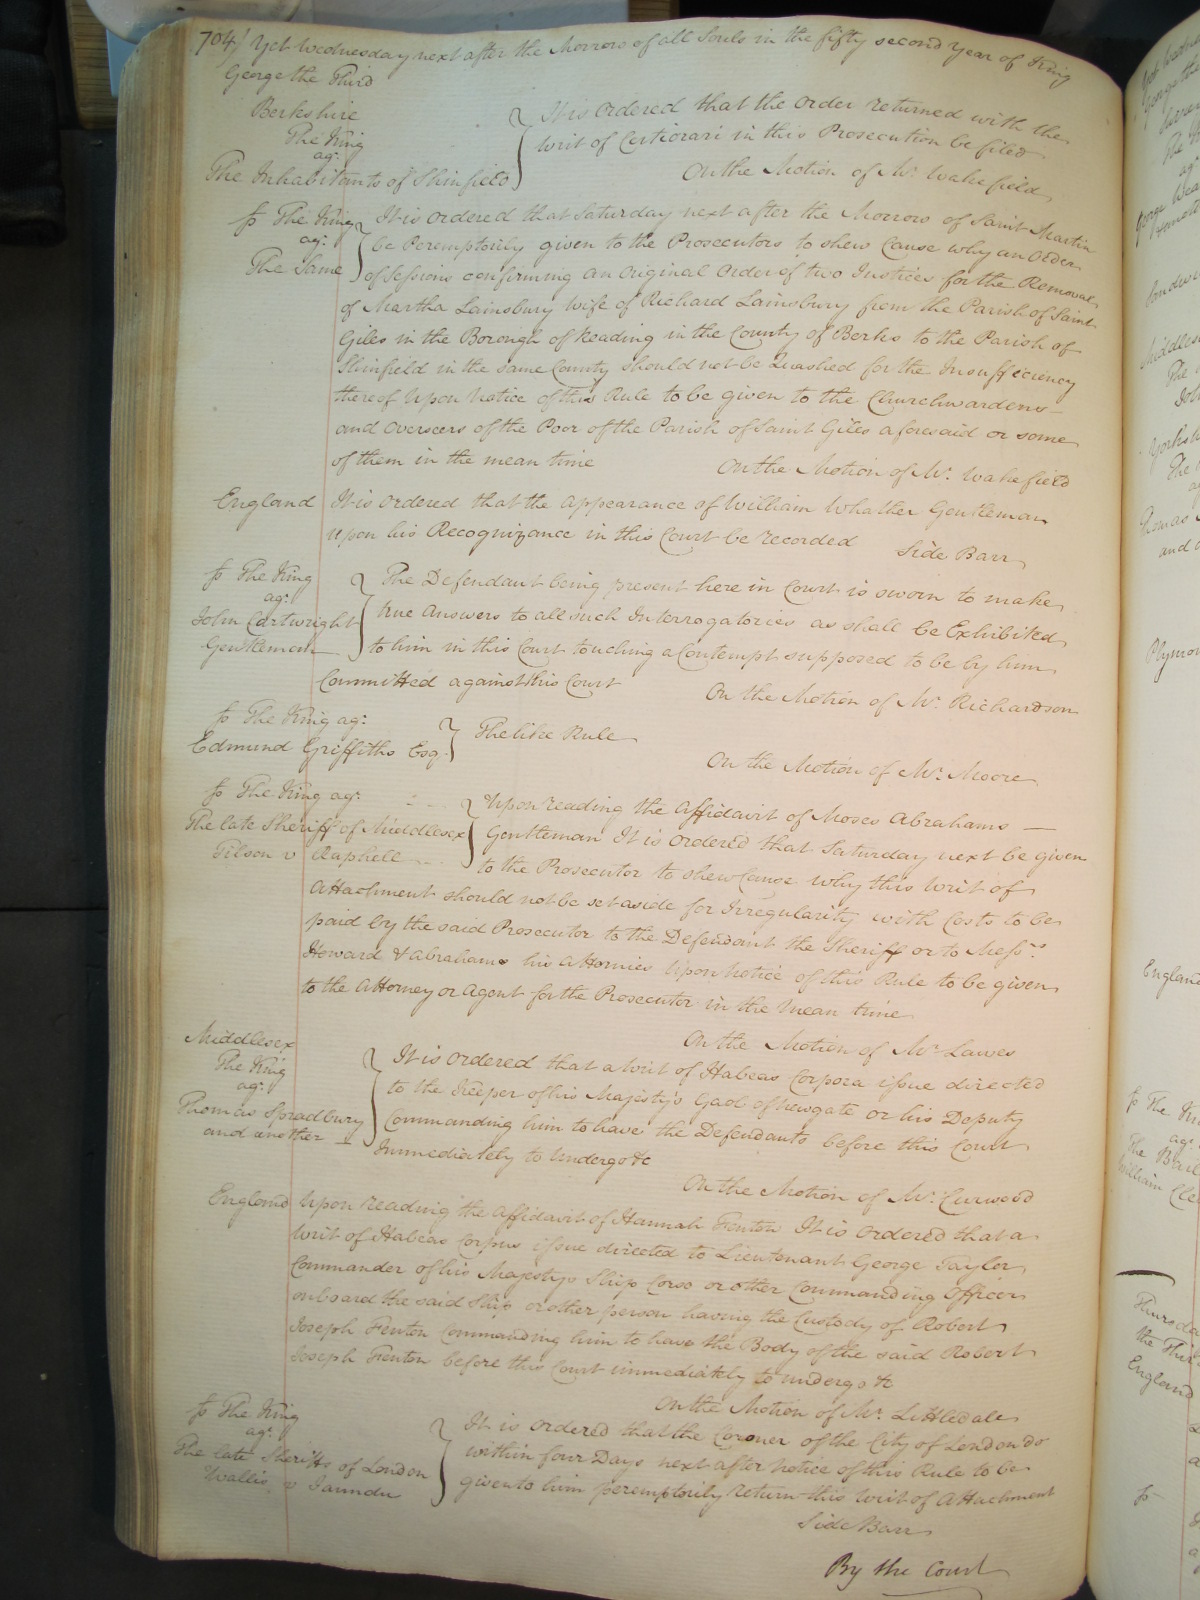 704/ Yet Wednesday next after the Morrow of all Souls in the fifty second Year of King
George the Third
Berkshire
The King
agt
The Inhabitants of Shinfield
It is ordered that the Order returned with the
writ of Certiorari in this Prosecution be filed
On the Motion of Mr. Wakefield
The King
agt
The Same
It is ordered that Saturday next after the Morrow of Saint Martin
be Peremptorily given to the Prosecutors to shew Cause why an Order
of Sessions confirming an Original Order of two Justices for the Removal
of Martha Lainsbury wife of Richard Lainsbury from the Parish of Saint
Giles in the Borough of Reading in the County of Berks to the Parish of
Shinfield in the same County should not be Quashed for the Insufficiency
thereof Upon Notice of this Rule to be given to the Churchwardens
and Overseers of the Poor of the Parish of Saint Giles aforesaid or some
of them in the mean time
On the Motion of Mr. Wakefield
England
It is Ordered that the Appearance of William Whather Gentleman
upon his Recognizance in this Court be recorded Side Barr
The King
agt
John Cartwright
Gentleman
The Defendant being present here in Court is sworn to make
true Answers to all such Interrogatories as shall be Exhibited
to him in this Court touching a Contempt supposed to be by him
Committed against this Court
On the Motion of Mr. Richardson
The King agt
Edmund Griffiths Esq.
The like Rule
On the Motion of Mr. Moore
The King agt
The late Sheriff of Middlesex
Tilson v Raphell
Upon reading the Affidavit of Moses Abrahams
Gentleman It is ordered that Saturday next be given
to the Prosecutor to shew Cause why this Writ of
Attachment should not be set aside for Irregularity with Costs to be
paid by the said Prosecutor to the Defendant the Sheriff or to Messrs.
Howard & Abrahams his Attornies Upon Notice of this Rule to be given
to the Attorney or Agent for the Prosecutor in the mean time
On the Motion of Mr. Lawes
Middlesex
The King
agt
Thomas Spradbury
and another
It is ordered that a Writ of Habeas Corpora issue directed
to the Keeper of his Majesty's Gaol of Newgate or his Deputy
Commanding him to have the Defendants before this Court
Immediately to undergo &c
On the Motion of Mr. Curwood
England
Upon reading the Affidavit of Hannah Fenton It is Ordered that a
Writ of Habeas Corpus issue directed to Lieutenant George Taylor
Commander of his Majestys Ship Corso or other Commanding Officer
onboard the said Ship or other person having the Custody of Robert
Joseph Fenton Commanding him to have the Body of the said Robert
Joseph Fenton before this Court immediately to undergo &c
On the Motion of Mr. Littledale
The King
agt
The late Sheriffs of London
Wallis v
It is ordered that the Coroner of the City of London do
within four Days next after Notice of this Rule to be
given to him peremptorily return this Writ of Attachment
Side Barr
By the Court